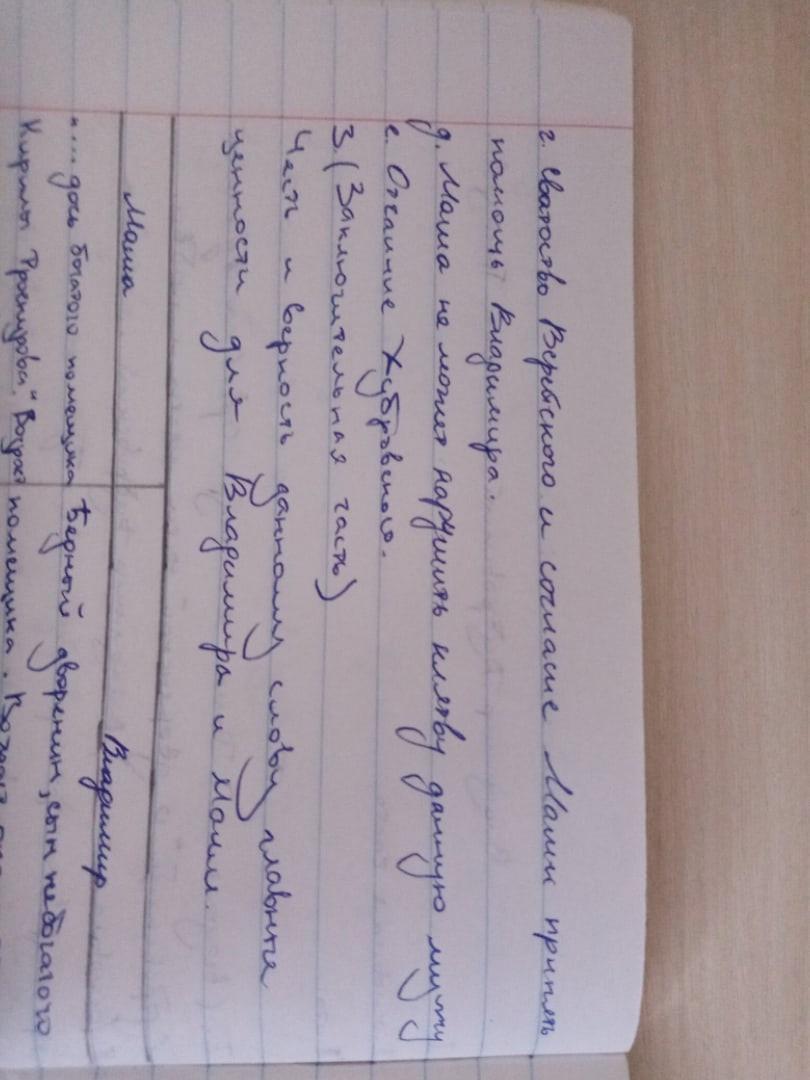 г. Сватовство Верейского и согласие Маши принять
помощь Владимира.
д. Маша не может нарушить клятву данную мужу
е. Отчаяние Дубровского.
3. (Заключительная часть)
Честь и верность данному слову главные
ценности для Владимира и Маши.
Маша Владимир
"... дочь богатого помещика Бедный дворенин, сын небогатого
Кирилы Троекурова." Возраст помещика.